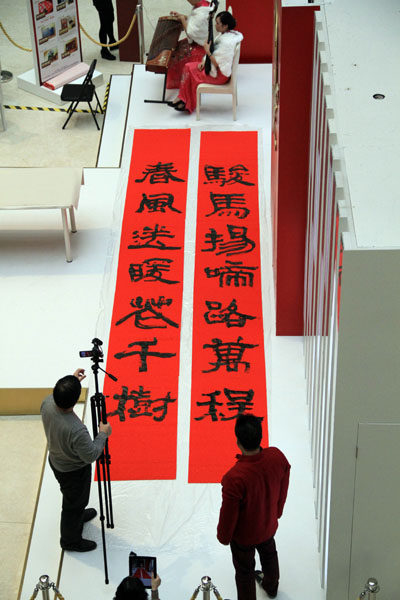 駿馬揚啼路萬程
春風送暖花千樹